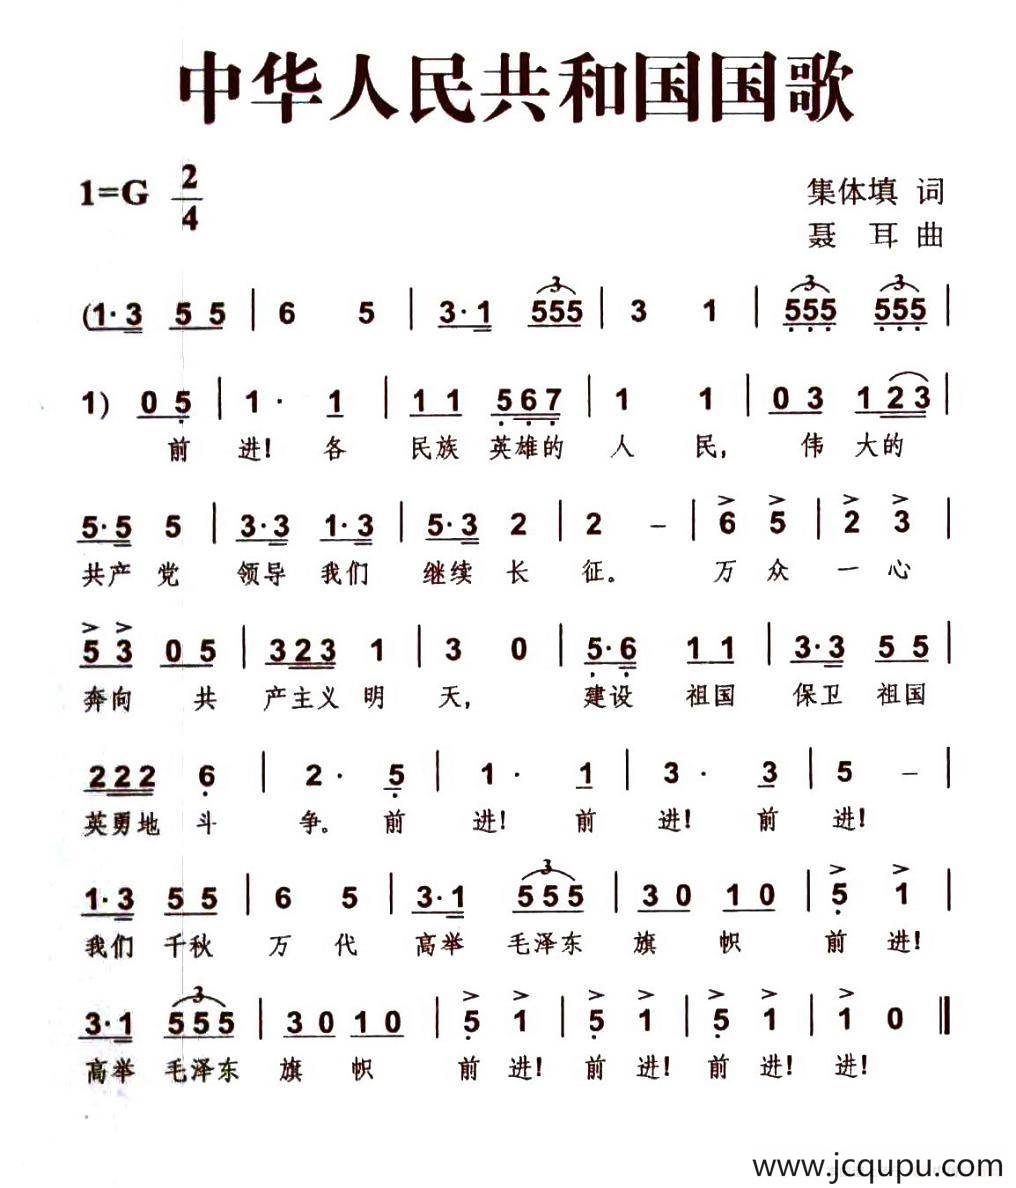 中华人民共和国国歌
1=G 2/4
集体填 词
聂 耳 曲
(1·3 5 5 | 6 5 | 3·1 555 | 3 1 | 555 555 |
1) 0 5 | 1· 1 | 1 1 567 | 1 1 | 0 3 1 23 |
前 进! 各 民族 英雄的 人 民, 伟 大的
5·5 5 | 3·3 1·3 | 5·3 2 | 2 – | 6 5 | 2 3 |
共产 党 领导 我们 继续 长 征。 万 众 一 心
5 3 0 5 | 323 1 | 3 0 | 5·6 1 1 | 3·3 5 5 |
奔向 共 产主义 明 天, 建设 祖国 保卫 祖国
222 6 | 2· 5 | 1· 1 | 3· 3 | 5 – |
英勇地 斗 争。 前 进! 前 进! 前 进!
1·3 5 5 | 6 5 | 3·1 555 | 3 0 1 0 | 5 1 |
我们 千秋 万 代 高举 毛泽东 旗 帜 前 进!
3·1 555 | 3 0 1 0 | 5 1 | 5 1 | 5 1 | 1 0 ‖
高举 毛泽东 旗 帜 前 进! 前 进! 前 进! 进!
www.jcqupu.com